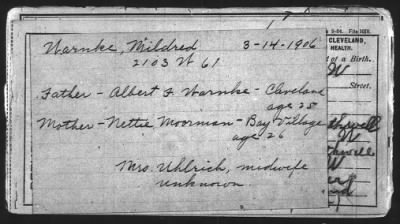 Warnke, Mildred 3-14-1906
2103 W 61
Father - Albert F Warnke - Cleveland
age 28
Mother - Nettie Moorman - Bay Village
age 26
Mrs. Uhlrich, midwife
unknown
CLEVELAND,
HEALTH.
t of a Birth.
W
Street.